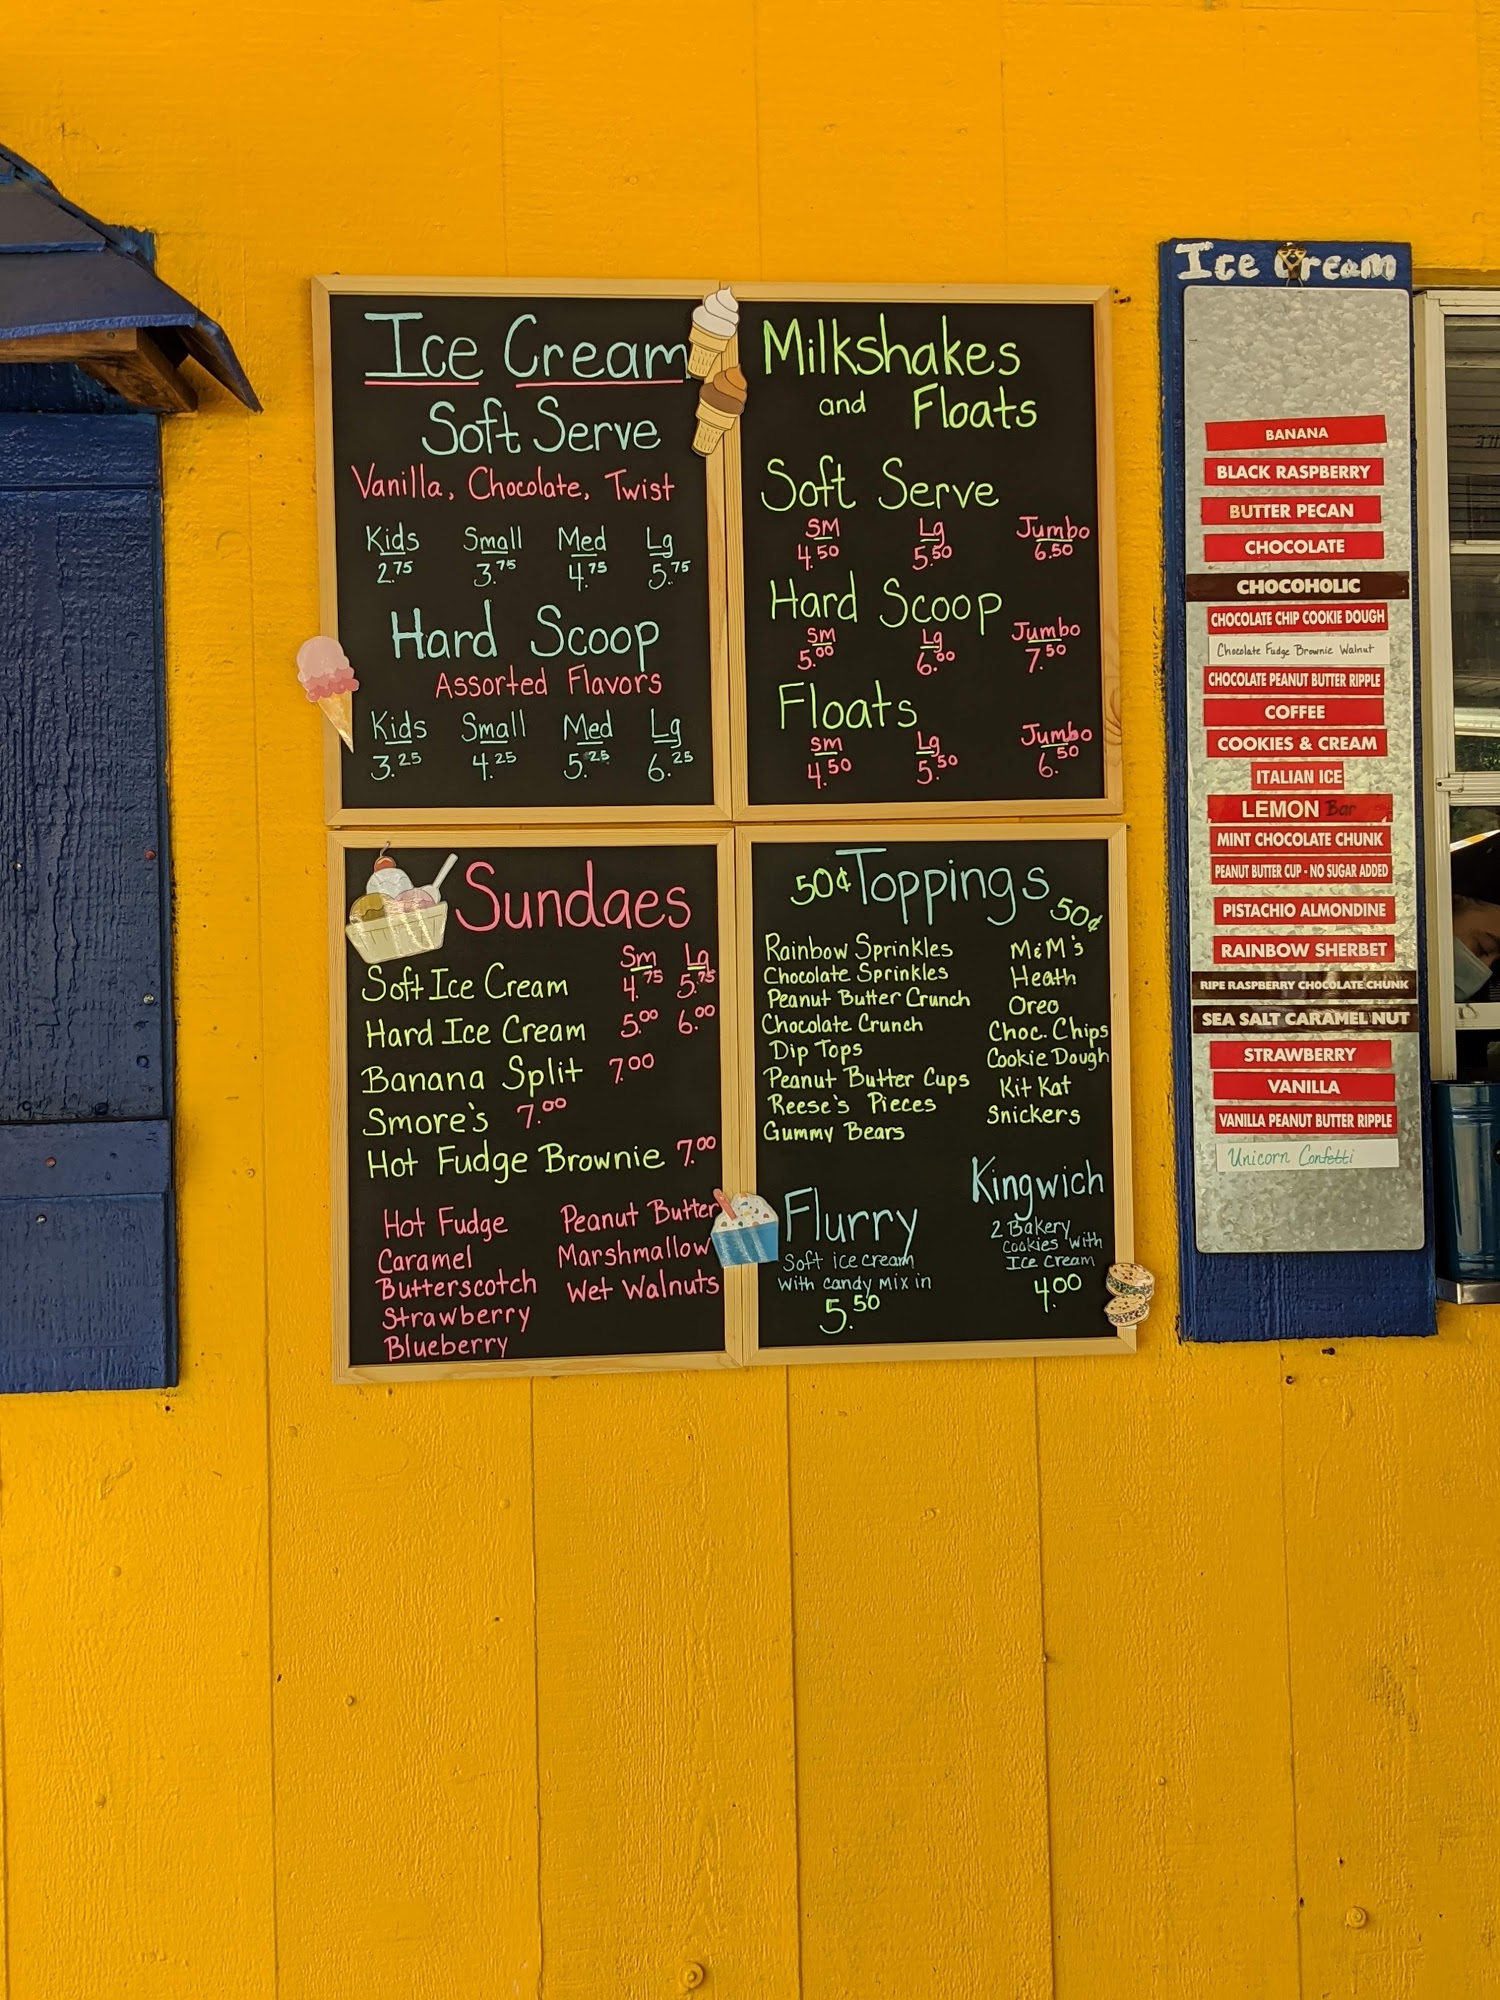 Ice Cream
Soft Serve
Vanilla, Chocolate, Twist
Kids Small Med Lg
2.75 3.75 4.75 5.75
Hard Scoop
Assorted Flavors
Kids Small Med Lg
3.25 4.25 5.25 6.25
Milkshakes
and Floats
Soft Serve
SM Lg Jumbo
4.50 5.50 6.50
Hard Scoop
SM Lg Jumbo
5.00 6.00 7.50
Floats
SM Lg Jumbo
4.50 5.50 6.50
Sundaes
Sm Lg
Soft Ice Cream 4.75 5.75
Hard Ice Cream 5.00 6.00
Banana Split 7.00
Smore's 7.00
Hot Fudge Brownie 7.00
Hot Fudge Peanut Butter
Caramel Marshmallow
Butterscotch Wet Walnuts
Strawberry
Blueberry
50¢ Toppings 50¢
Rainbow Sprinkles M&M's
Chocolate Sprinkles Heath
Peanut Butter Crunch Oreo
Chocolate Crunch Choc. Chips
Dip Tops Cookie Dough
Peanut Butter Cups Kit Kat
Reese's Pieces Snickers
Gummy Bears
Flurry
Soft ice cream
with candy mix in
5.50
Kingwich
2 Bakery
Cookies with
Ice Cream
4.00
Ice Cream
BANANA
BLACK RASPBERRY
BUTTER PECAN
CHOCOLATE
CHOCOHOLIC
CHOCOLATE CHIP COOKIE DOUGH
Chocolate Fudge Brownie Walnut
CHOCOLATE PEANUT BUTTER RIPPLE
COFFEE
COOKIES & CREAM
ITALIAN ICE
LEMON Bar
MINT CHOCOLATE CHUNK
PEANUT BUTTER CUP - NO SUGAR ADDED
PISTACHIO ALMONDINE
RAINBOW SHERBET
RIPE RASPBERRY CHOCOLATE CHUNK
SEA SALT CARAMEL NUT
STRAWBERRY
VANILLA
VANILLA PEANUT BUTTER RIPPLE
Unicorn Confetti